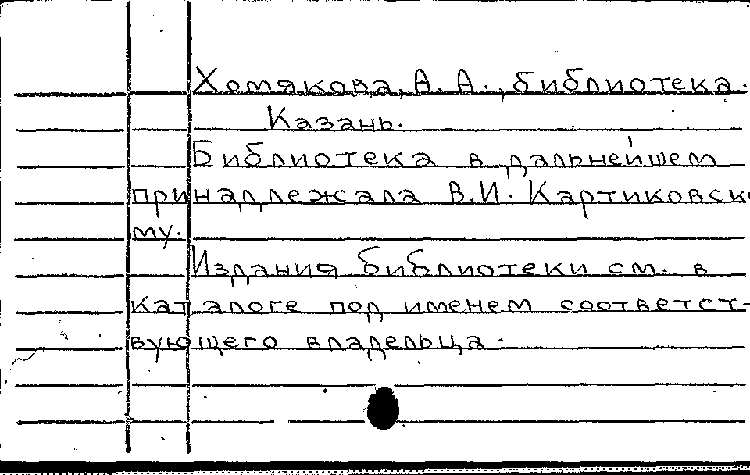 Хомякова, А. А., библиотека.
Казань.
Библиотека в дальнейшем
принадлежала В.И. Картиковск
му.
Издания библиотеки см. в
каталоге под именем соответст-
вующего владельца.